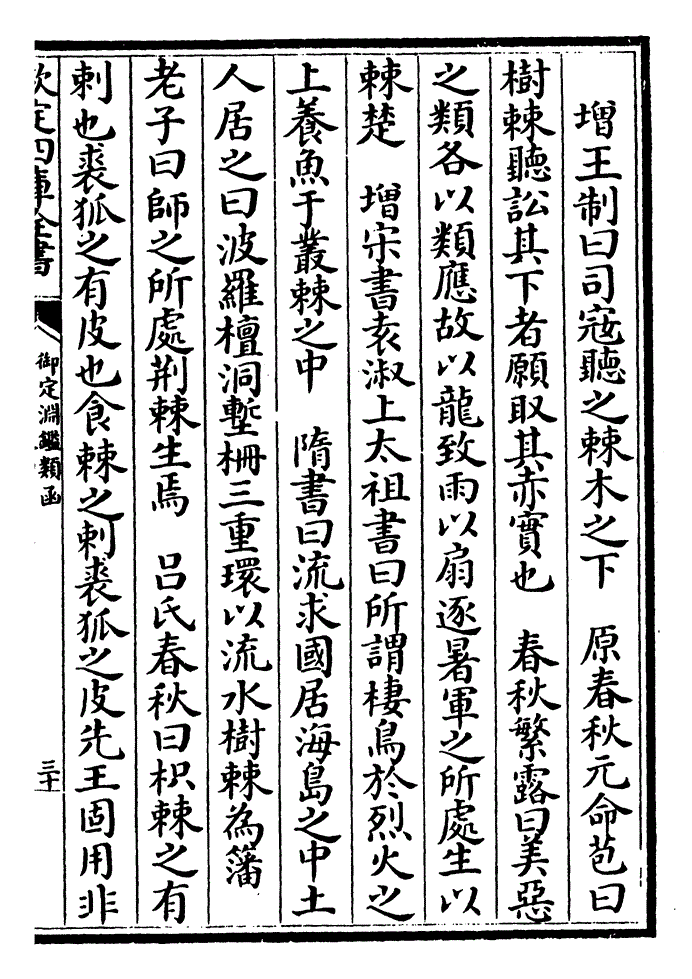 增王制曰司寇聽之棘木之下　原春秋元命苞曰
樹棘聽訟其下者願取其赤實也　春秋繁露曰美惡
之類各以類應故以龍致雨以扇逐暑軍之所處生以
棘楚　增宋書袁淑上太祖書曰所謂棲鳥於烈火之
上養魚于叢棘之中　隋書曰流求國居海島之中土
人居之曰波羅檀洞塹柵三重環以流水樹棘為籓
老子曰師之所處荆棘生焉　呂氏春秋曰枳棘之有
刺也裘狐之有皮也食棘之刺裘狐之皮先王固用非
欽定四庫全書
御定淵鑑類函
三十一